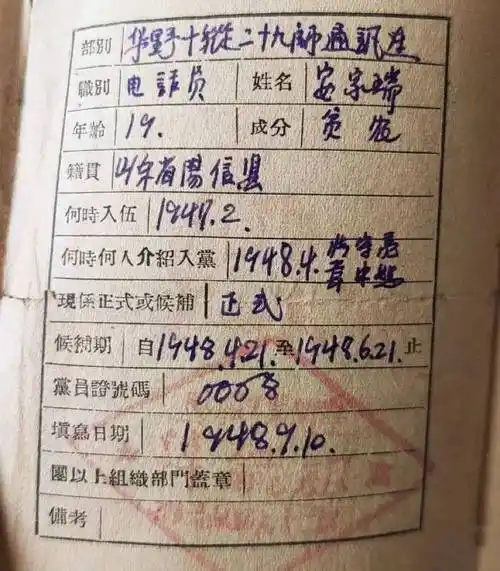 部別 华野十縱二十九師通訊连
職別 电話员 姓名 安宗瑞
年齡 19. 成分 贫农
籍貫 山东省陽信县
何時入伍 1947.2.
何時何人介紹入黨 1948.4.
現係正式或候補 正式
候補期 自1948.4.21.至1948.6.21.止
黨員證號碼 0008
填寫日期 1948.9.10.
團以上組織部門蓋章
備考